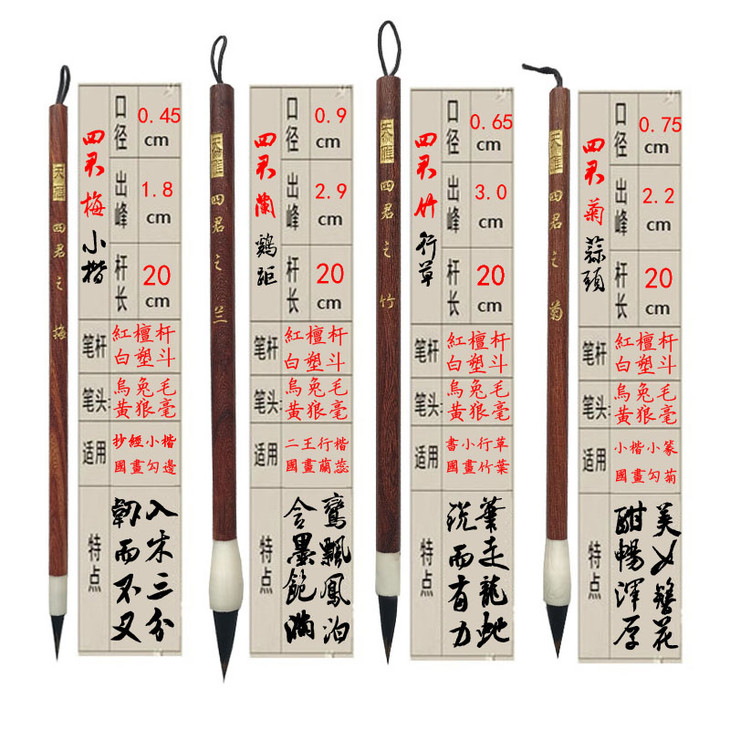 天雅
四君之梅
四君 梅 小楷
口径 0.45 cm
出峰 1.8 cm
杆长 20 cm
笔杆 紅檀杆
白塑斗
笔头: 烏兔毛
黃狼毫
适用 抄經小楷
國畫勾邊
特点
入木三分
韌而不叉
天雅
四君之兰
四君 蘭 鷄距
口径 0.9 cm
出峰 2.9 cm
杆长 20 cm
笔杆 紅檀杆
白塑斗
笔头: 烏兔毛
黃狼毫
适用 二王行楷
國畫蘭蕊
特点
鸞飄鳳泊
含墨飽滿
天雅
四君之竹
四君 竹 行草
口径 0.65 cm
出峰 3.0 cm
杆长 20 cm
笔杆 紅檀杆
白塑斗
笔头: 烏兔毛
黃狼毫
适用 書小行草
國畫竹葉
特点
筆走龍蛇
锐而有力
天雅
四君之菊
四君 菊 蒜頭
口径 0.75 cm
出峰 2.2 cm
杆长 20 cm
笔杆 紅檀杆
白塑斗
笔头: 烏兔毛
黃狼毫
适用 小楷小篆
國畫勾菊
特点
美女簪花
酣暢渾厚